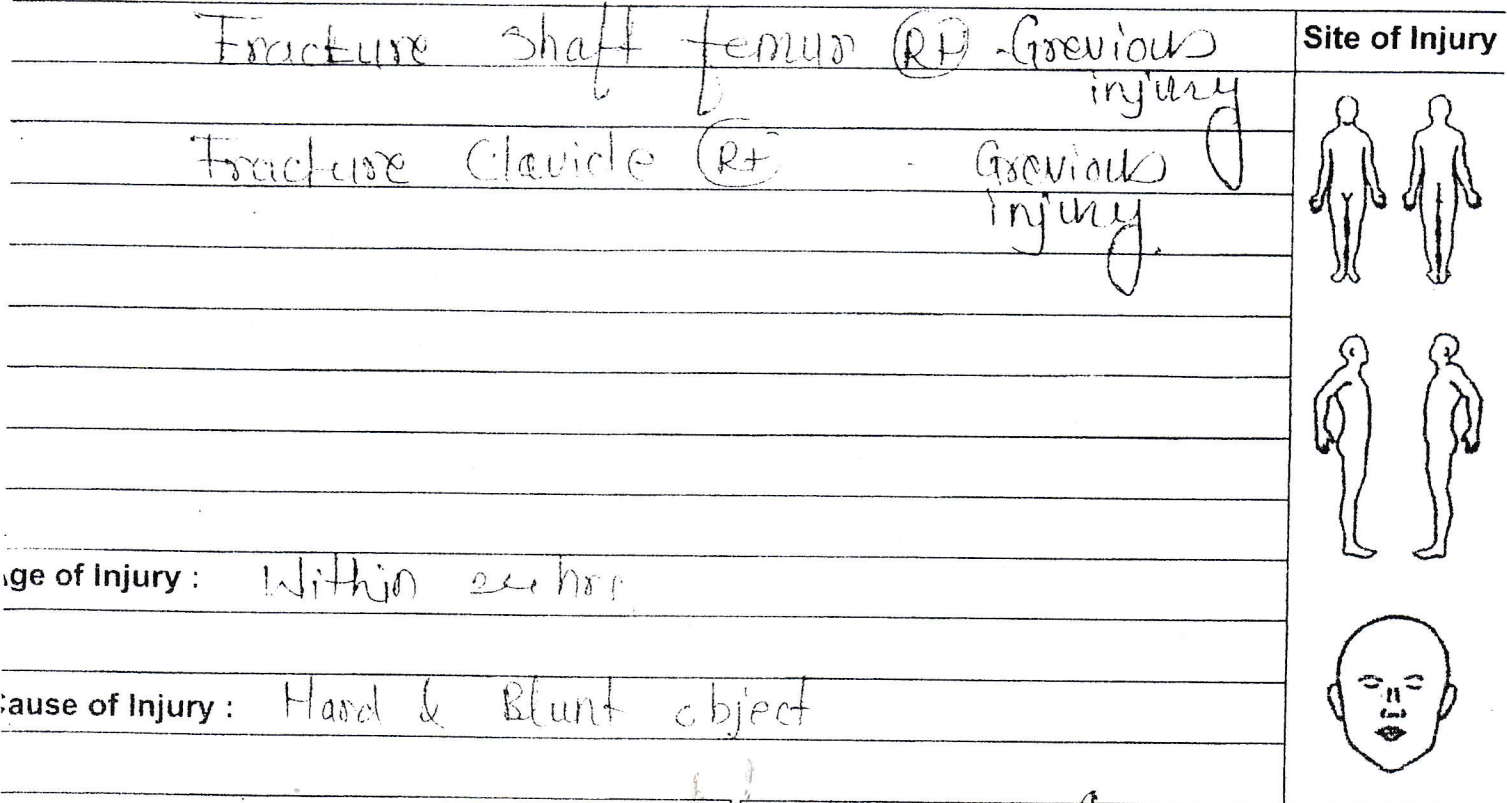 Fracture Shaft femur Rt - Grevious
injury
Fracture Clavicle Rt - Grevious
injury.
Site of Injury
ge of Injury : Within 24 hrs
ause of Injury : Hard & Blunt object